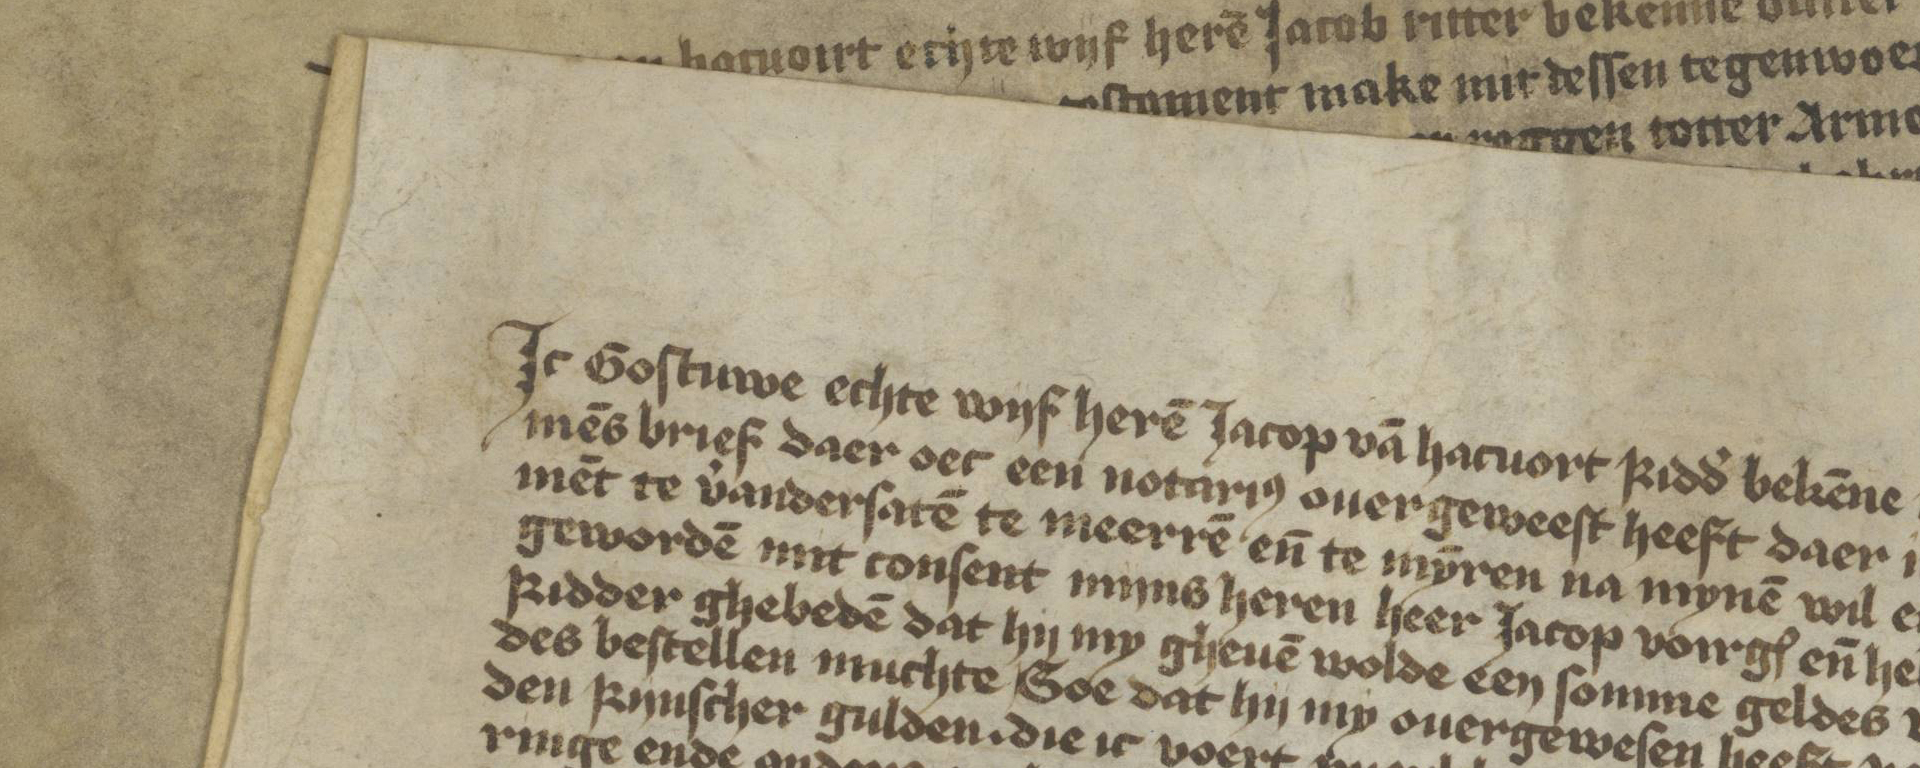 hacuoirt echte wijf herē Jacob ritter bekenne
testament make mit dessen tegenwoer
roggen totter Arme
Ic Gostuwe echte wijf herē Jacop vā hacuort Ridd' bekēne
mēs brief daer oec een notariꝯ ouergeweest heeft daer
mēt te v'andersatē te meerrē en̄ te mȳren na mynē wil
gewordē mit consent mijns heren heer Jacop voirgͭ en̄
Ridder ghebedē dat hij my gheuē wolde een somme geldes
des bestellen muchte Soe dat hij my ouergewesen heeft
den Rijnscher gulden. die ic voert
ringe ende